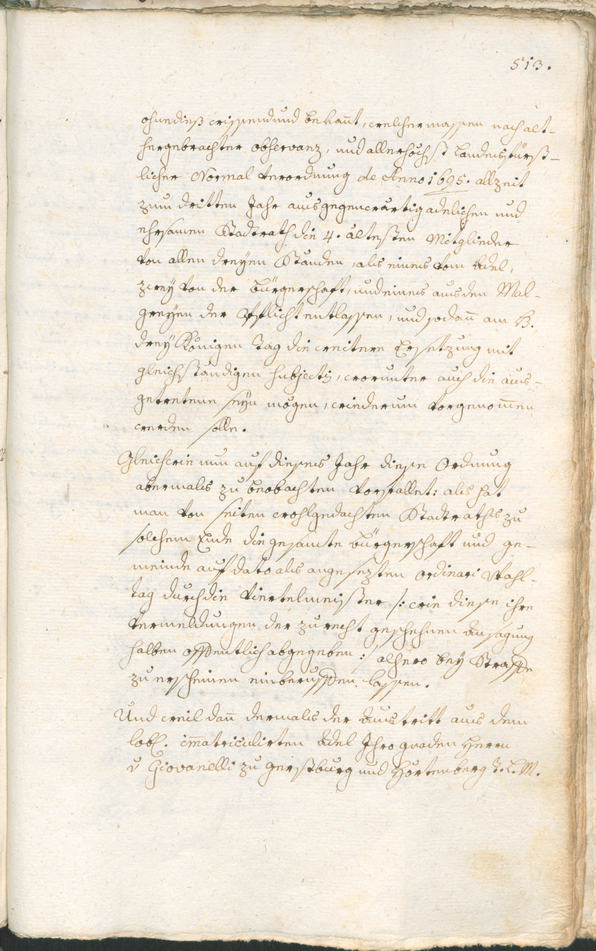 513.
ohnediß wissend und bekañt, welchermassen nach alt-
hergebrachter observanz, und allerhöchst Landesfürst-
licher Normal Verordnung de Anno 1695. allzeit
zum dritten Jahr aus gegenwärtig adelichen und
ehrsamen Stadtrath die 4. ältesten Mitglieder
von allen dreyen Ständen, als eines vom Adel,
zwey von der Bürgerschaft, und eines aus den Mal-
greyen der Pflicht entlassen, und sodañ am H.
drey Königen Tag die weitere Ersetzung mit
gleichständigen subjectis, worunter auch die aus-
getretene seyn mögen, wiederum vorgenom̄en
werden solle.
Gleichwie nun auf dieses Jahr diese Ordnung
abermals zu beobachten vorfallet: als hat
man von seiten wohlgedachten Stadtraths zu
solchem Ende die gesamte Bürgerschaft und ge-
meinde auf dato als angesezten ordinari Wahl-
tag durch die Viertelmeister /: wie diese ihre
Vermeldungen der zurecht geschehenen Ansagung
halben offentlich abgegeben :/ alhero bey Straffe
zu erscheinen einberuffen lassen.
Und weil dañ dermals der Austritt aus dem
löbl. im̄atriculirten Adel Ihro gnaden Herrn
v Giovanelli zu Gerstburg und Hörtenberg T. L. M.